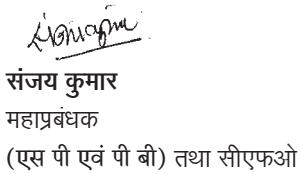 संजय कुमार
महाप्रबंधक
(एस पी एवं पी बी) तथा सीएफओ